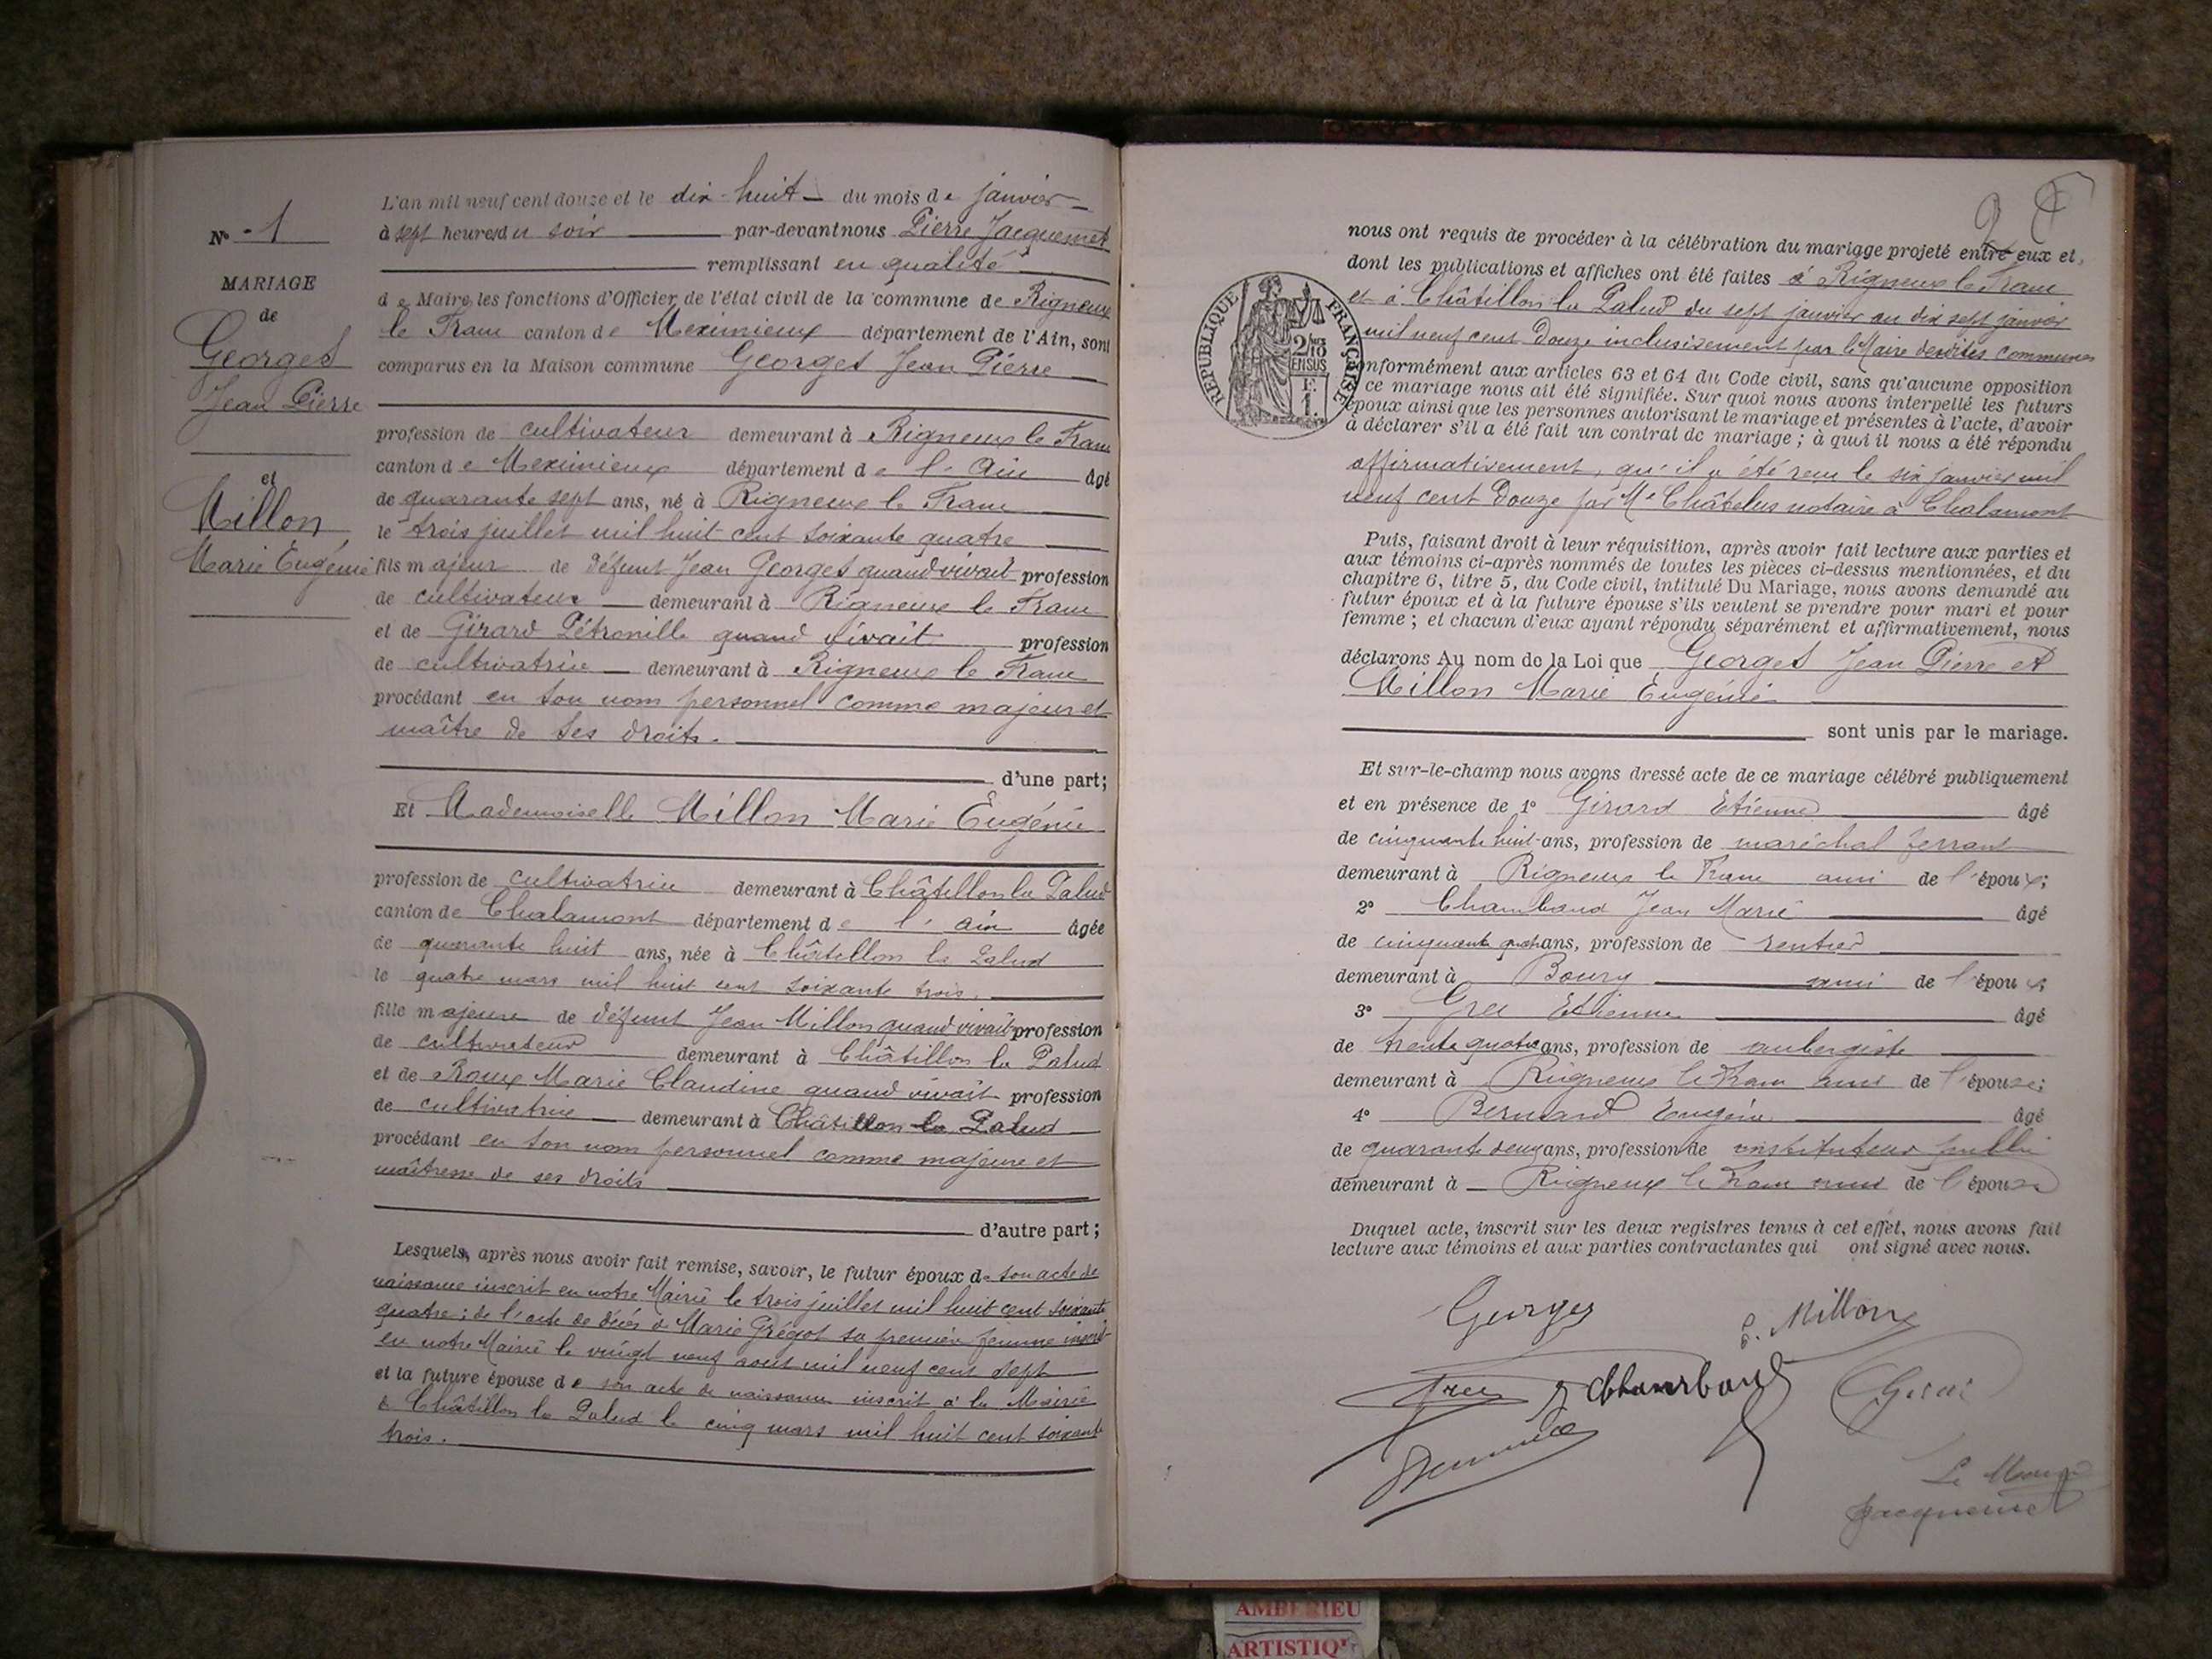 L'an mil neuf cent douze et le dix-huit du mois de janvier
N° 1
à sept heures du soir par-devant nous Pierre Jacquemet
remplissant en qualité
MARIAGE
de Maire les fonctions d'Officier de l'état civil de la commune de Rigneux
de
le Franc canton de Meximieux département de l'Ain, sont
Georges
comparus en la Maison commune Georges Jean Pierre
Jean Pierre
profession de cultivateur demeurant à Rigneux le Franc
canton de Meximieux département de l'Ain âgé
et
de quarante sept ans, né à Rigneux le Franc
Millon
le trois juillet mil huit cent soixante quatre
Marie Eugénie
fils majeur de défunt Jean Georges quand vivait profession
de cultivateur demeurant à Rigneux le Franc
et de Girard Pétronille quand vivait profession
de cultivatrice demeurant à Rigneux le Franc
procédant en son nom personnel comme majeur et
maître de ses droits.
d'une part;
Et Mademoiselle Millon Marie Eugénie
profession de cultivatrice demeurant à Châtillon la Palud
canton de Chalamont département de l'ain âgée
de quarante huit ans, née à Châtillon la Palud
le quatre mars mil huit cent soixante trois.
fille majeure de défunt Jean Millon quand vivait profession
de cultivateur demeurant à Châtillon la Palud
et de Roux Marie Claudine quand vivait profession
de cultivatrice demeurant à Châtillon la Palud
procédant en son nom personnel comme majeure et
maîtresse de ses droits
d'autre part;
Lesquels, après nous avoir fait remise, savoir, le futur époux de son acte de
naissance inscrit en notre Mairie le trois juillet mil huit cent soixante
quatre; de l'acte de décès de Marie Grégot sa première femme inscrit
en notre Mairie le vingt neuf aout mil neuf cent sept
et la future épouse de son acte de naissance inscrit à la Mairie
de Châtillon la Palud le cinq mars mil huit cent soixante
trois.
nous ont requis de procéder à la célébration du mariage projeté entre eux et
dont les publications et affiches ont été faites à Rigneux le Franc
et à Châtillon la Palud du sept janvier au dix sept janvier
mil neuf cent Douze inclusivement par le Maire desdites communes
REPUBLIQUE FRANÇAISE
2/10
EN SUS
1 F.
conformément aux articles 63 et 64 du Code civil, sans qu'aucune opposition
à ce mariage nous ait été signifiée. Sur quoi nous avons interpellé les futurs
époux ainsi que les personnes autorisant le mariage et présentes à l'acte, d'avoir
à déclarer s'il a été fait un contrat de mariage; à quoi il nous a été répondu
affirmativement, qu'il a été recu le six janvier mil
neuf cent Douze par Me Châtelus notaire à Chalamont
Puis, faisant droit à leur réquisition, après avoir fait lecture aux parties et
aux témoins ci-après nommés de toutes les pièces ci-dessus mentionnées, et du
chapitre 6, titre 5, du Code civil, intitulé Du Mariage, nous avons demandé au
futur époux et à la future épouse s'ils veulent se prendre pour mari et pour
femme; et chacun d'eux ayant répondu séparément et affirmativement, nous
déclarons Au nom de la Loi que Georges Jean Pierre et
Millon Marie Eugénie
sont unis par le mariage.
Et sur-le-champ nous avons dressé acte de ce mariage célébré publiquement
et en présence de 1° Girard Etienne âgé
de cinquante huit ans, profession de maréchal ferrant
demeurant à Rigneux le Franc ami de l'époux;
2° Chambaud Jean Marie âgé
de cinquante ans, profession de rentier
demeurant à Bourg ami de l'époux;
3° Gree Etienne âgé
de trente quatre ans, profession de aubergiste
demeurant à Rigneux le Franc ami de l'épouse;
4° Bernard Eugène âgé
de quarante deux ans, profession de instituteur public
demeurant à Rigneux le Franc ami de l'épouse
Duquel acte, inscrit sur les deux registres tenus à cet effet, nous avons fait
lecture aux témoins et aux parties contractantes qui ont signé avec nous.
Georges
E. Millon
Gree
Chambaud
Girard
Le Maire
Jacquemet
AMBERIEU
ARTISTIQ